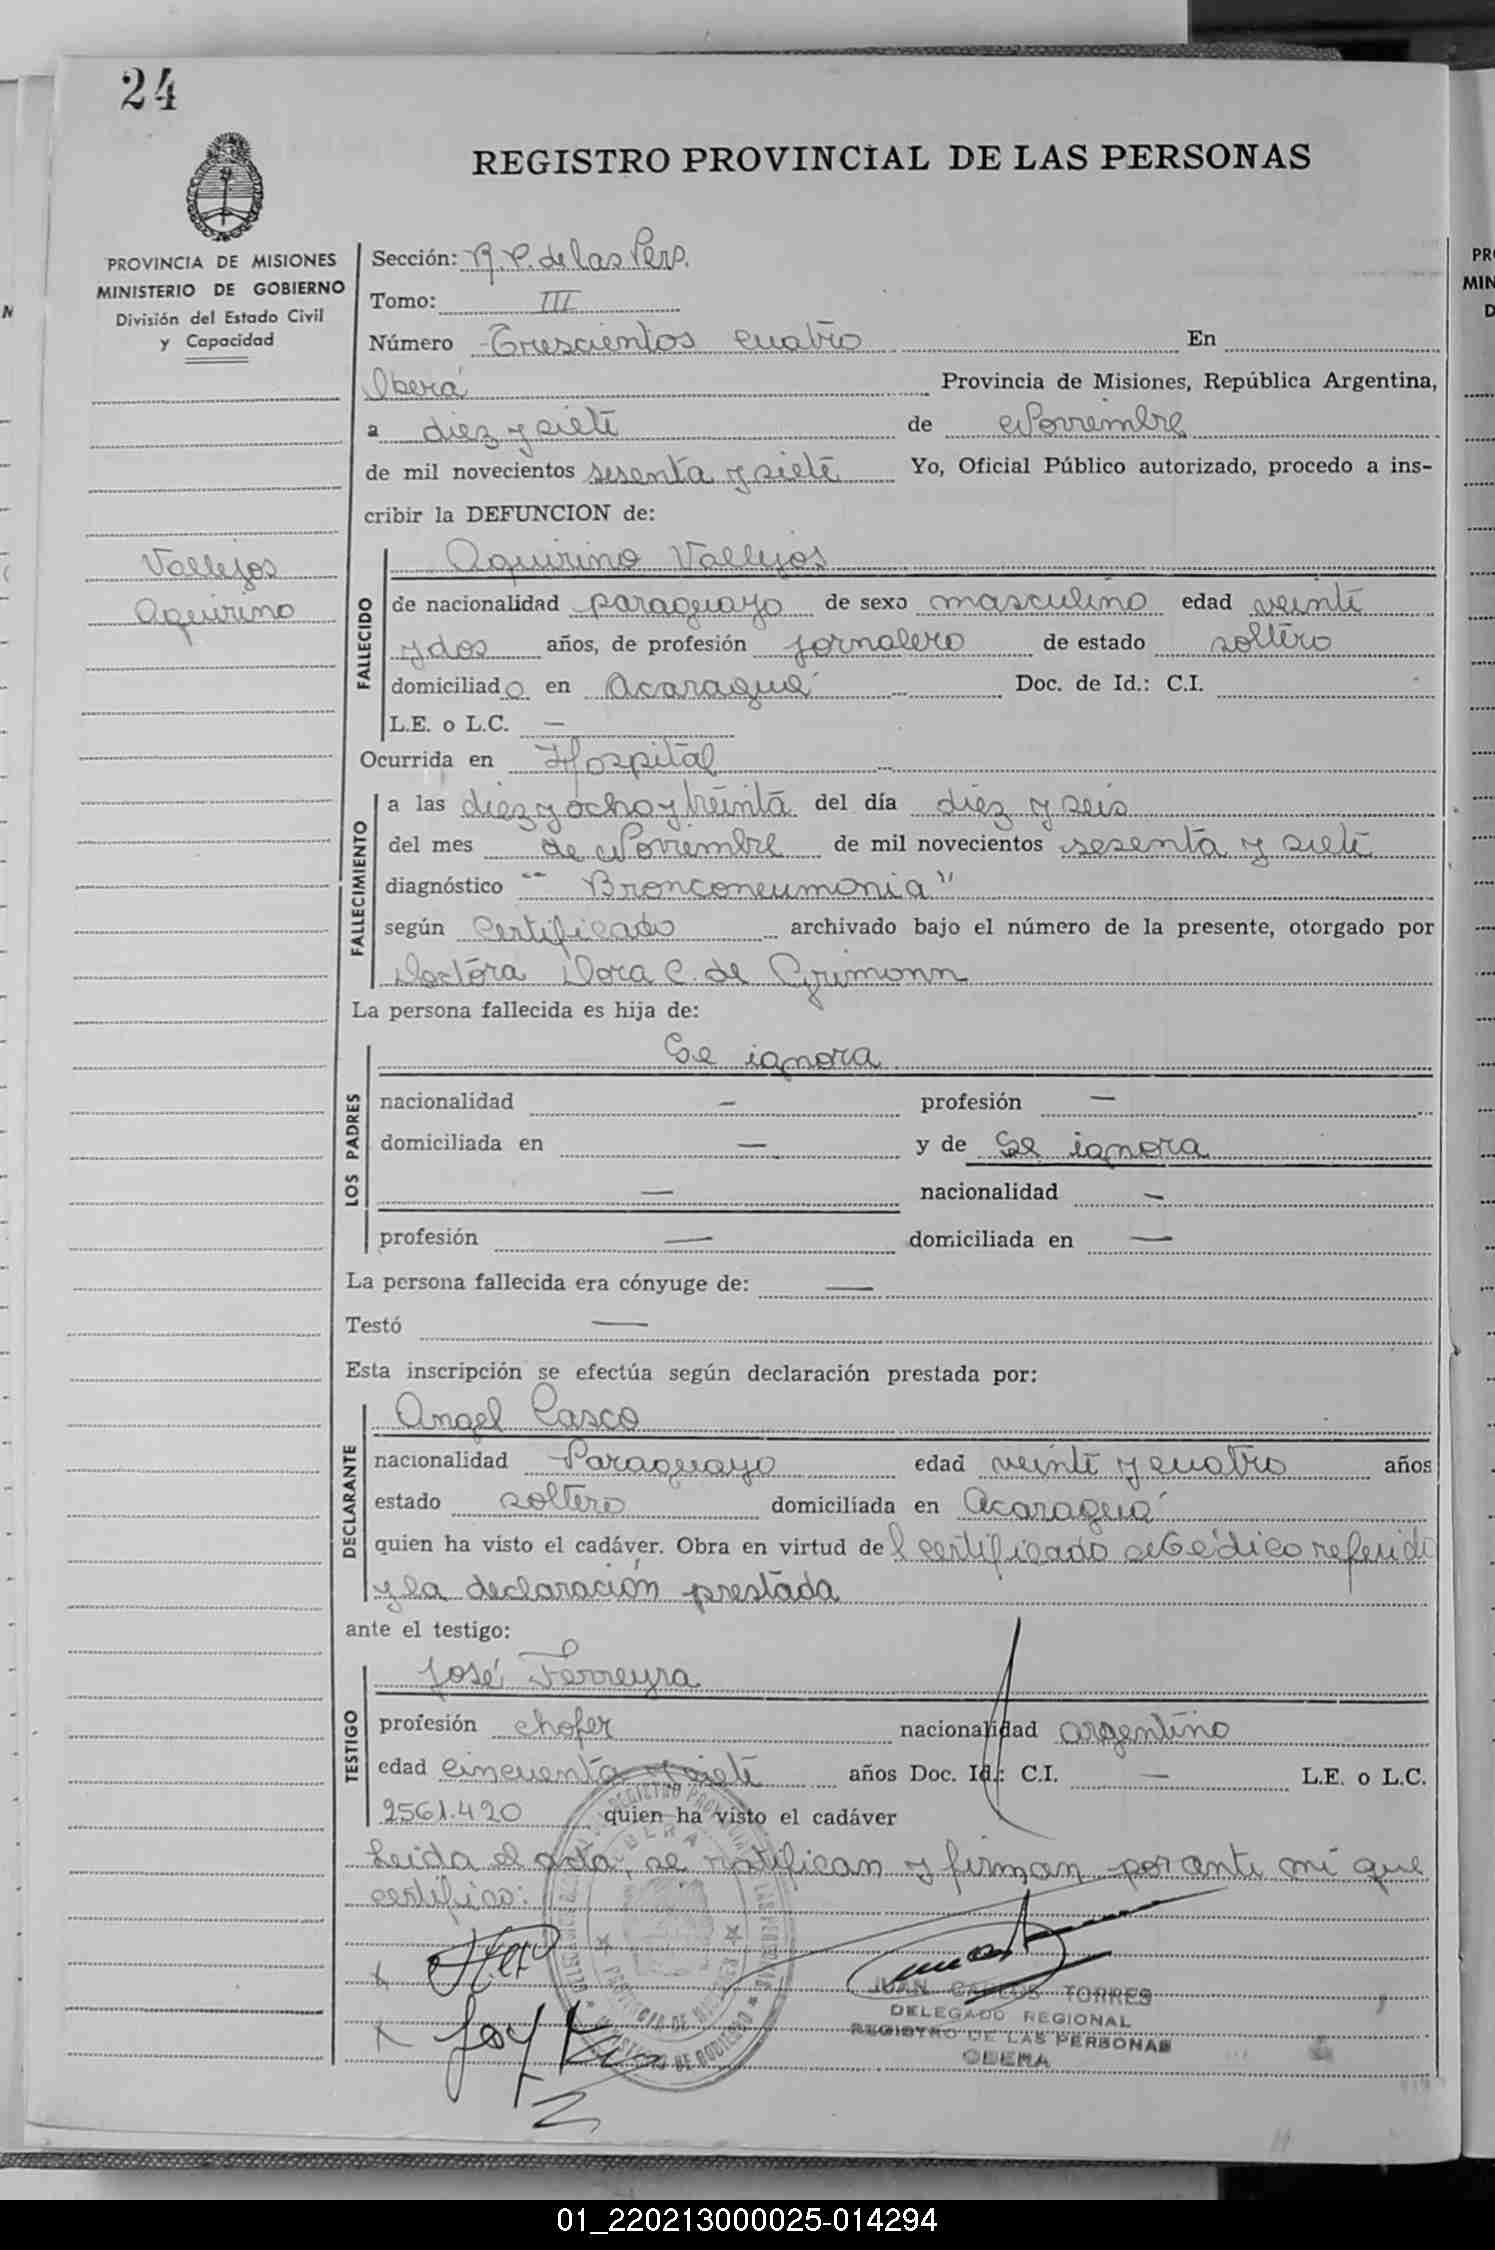 24
REGISTRO PROVINCIAL DE LAS PERSONAS
PROVINCIA DE MISIONES
MINISTERIO DE GOBIERNO
División del Estado Civil
y Capacidad
Vallejos
Aquirino
Sección: R. P. de las Pers.
Tomo: III
Número Trescientos cuatro En
Oberá Provincia de Misiones, República Argentina,
a diez y siete de Noviembre
de mil novecientos sesenta y siete Yo, Oficial Público autorizado, procedo a ins-
cribir la DEFUNCION de:
FALLECIDO
Aquirino Vallejos
de nacionalidad paraguayo de sexo masculino edad veinte
y dos años, de profesión jornalero de estado soltero
domiciliado en Acaraguá Doc. de Id.: C.I.
L.E. o L.C. —
Ocurrida en Hospital
FALLECIMIENTO
a las diez y ocho y treinta del día diez y seis
del mes de Noviembre de mil novecientos sesenta y siete
diagnóstico "Bronconeumonia"
según certificado archivado bajo el número de la presente, otorgado por
Doctora Dora C. de Grimonn
La persona fallecida es hija de:
LOS PADRES
Se ignora
nacionalidad — profesión —
domiciliada en — y de Se ignora
— nacionalidad —
profesión — domiciliada en —
La persona fallecida era cónyuge de: —
Testó —
Esta inscripción se efectúa según declaración prestada por:
DECLARANTE
Angel Casco
nacionalidad Paraguayo edad veinte y cuatro años
estado soltero domiciliada en Acaraguá
quien ha visto el cadáver. Obra en virtud del certificado Médico referido
y la declaración prestada
ante el testigo:
TESTIGO
José Ferreyra
profesión chofer nacionalidad argentino
edad cincuenta y siete años Doc. Id.: C.I. — L.E. o L.C.
2561.420 quien ha visto el cadáver
Leida el acta, se ratifican y firman por ante mí que
certifico:
JUAN CARLOS TORRES
DELEGADO REGIONAL
REGISTRO DE LAS PERSONAS
OBERA
01_220213000025-014294